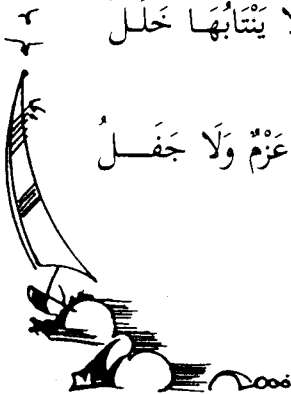 لَا يَنْتَابُهَا خَلَلُ
عَزْمٌ وَلَا جَفَلُ